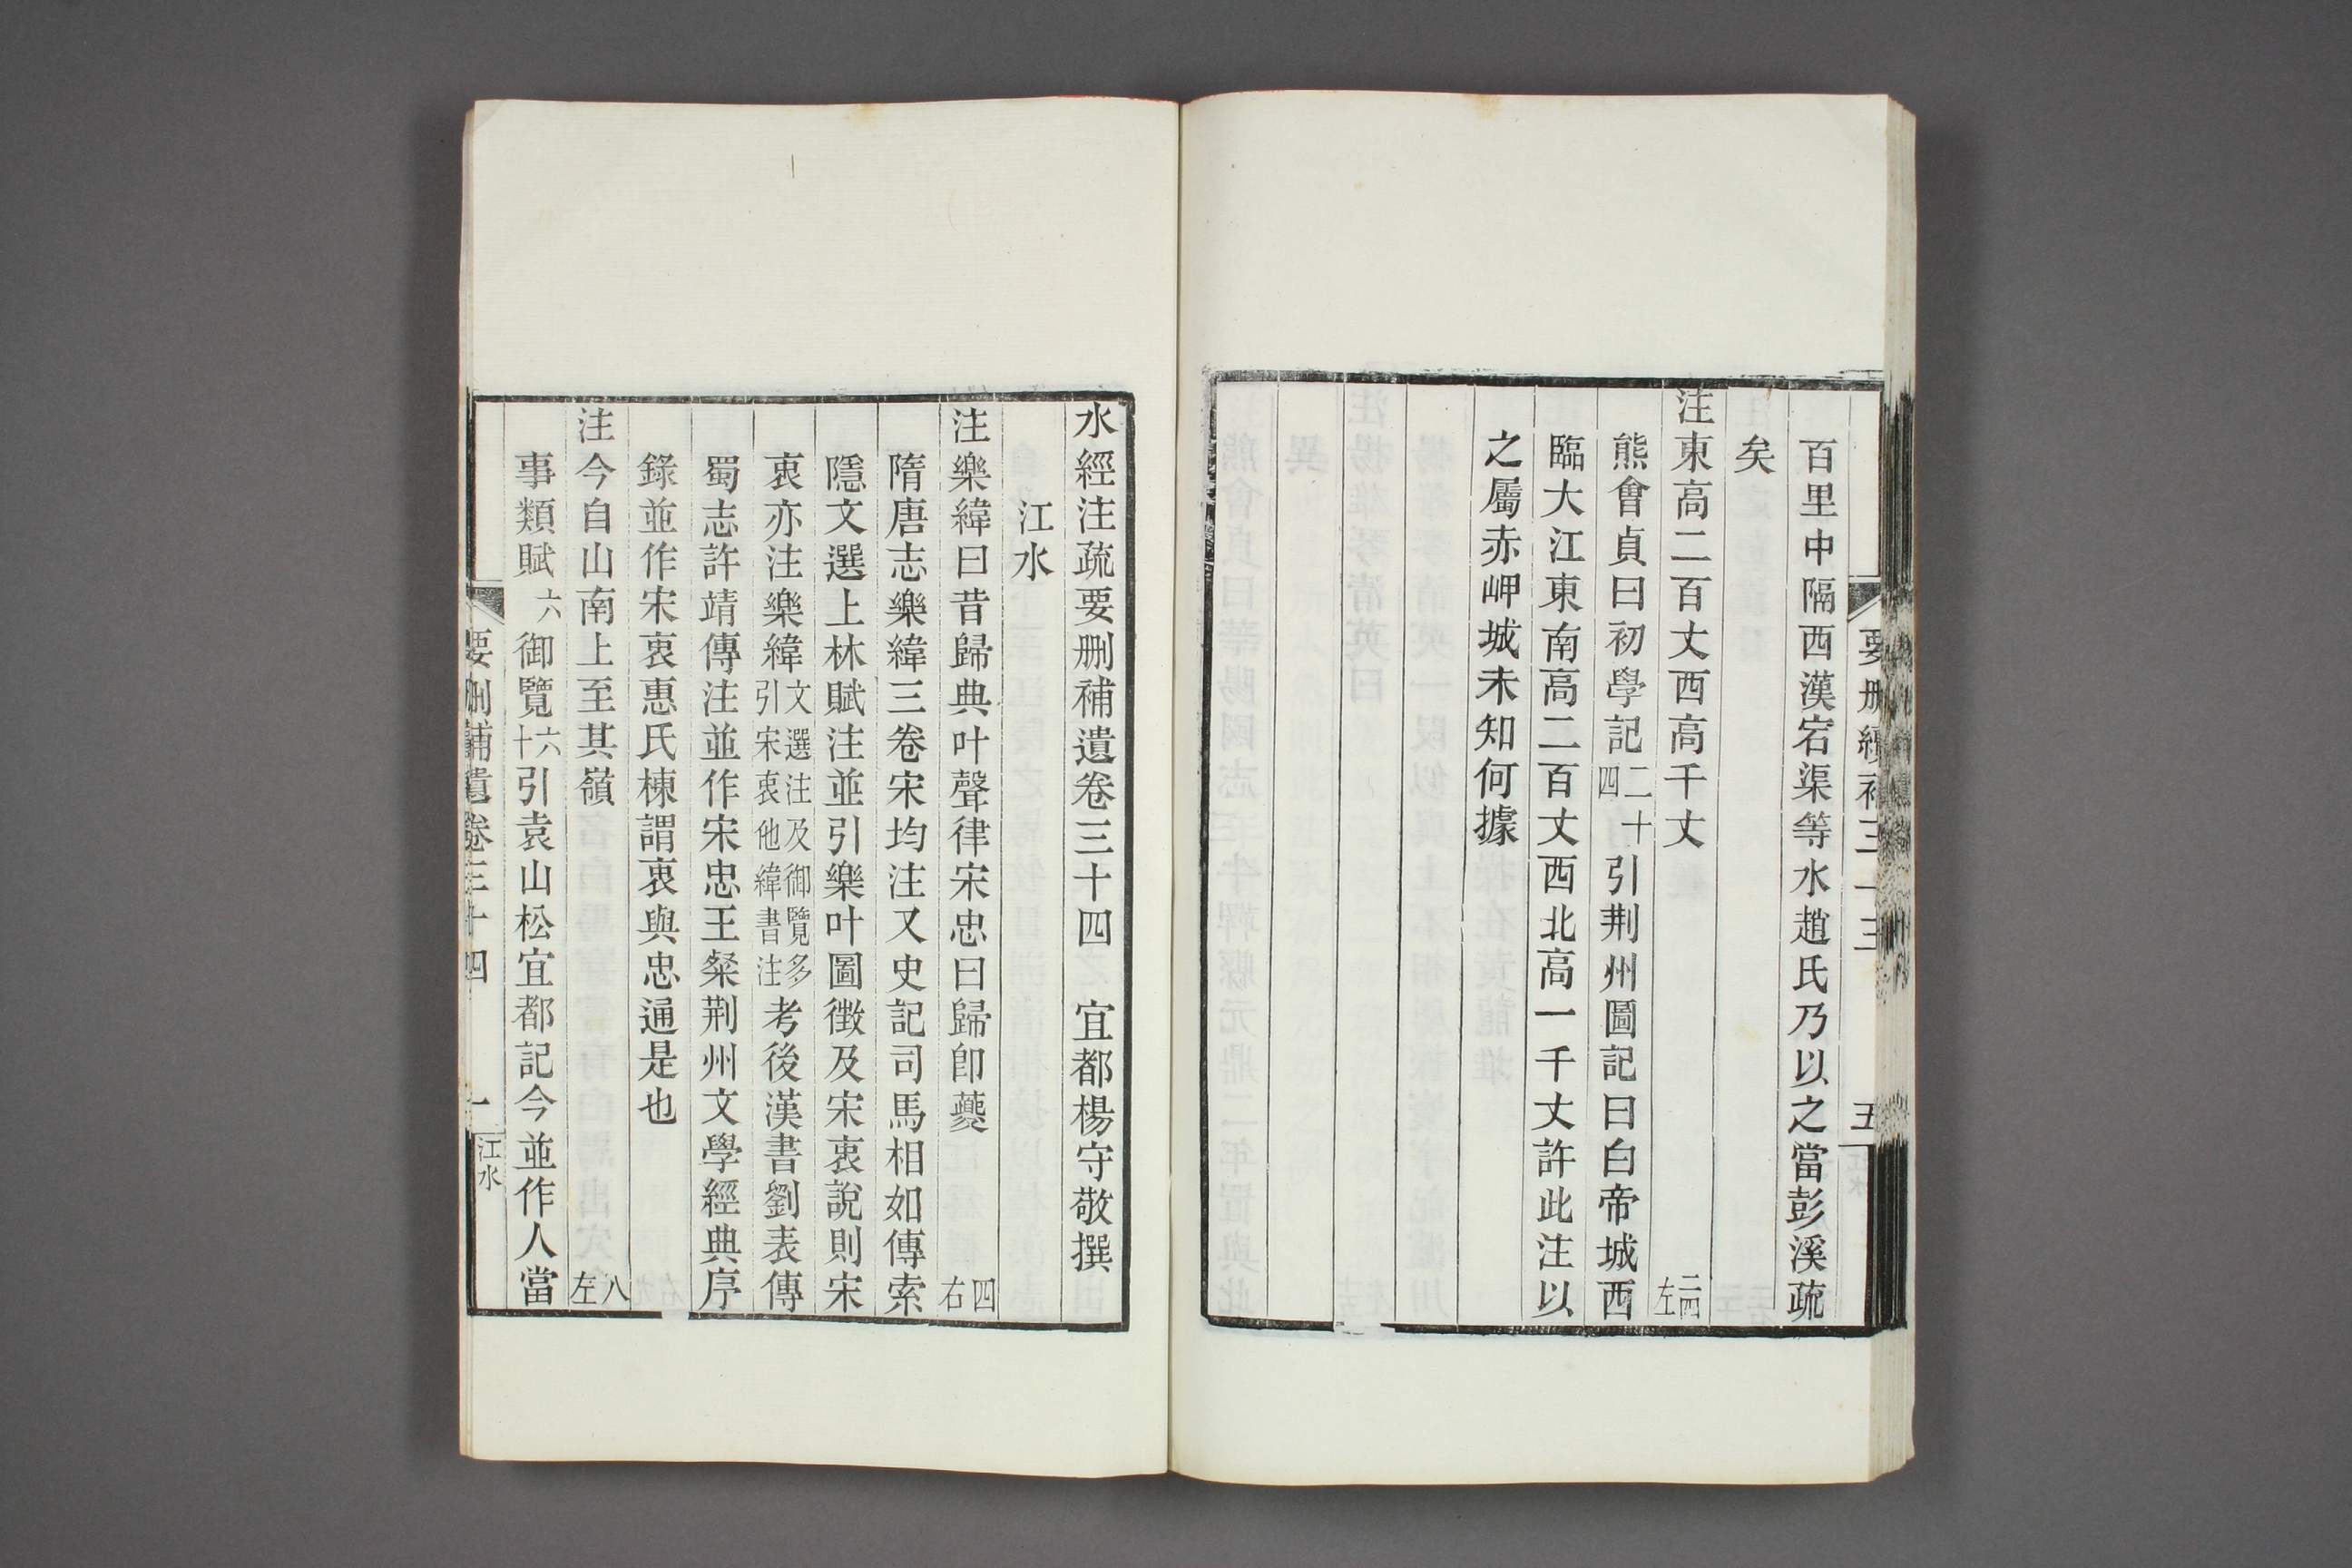 百里中隔西漢宕渠等水趙氏乃以之當彭溪疏
矣
注東高二百丈西高千丈二四左
熊會貞曰初學記二十四引荆州圖記曰白帝城西
臨大江東南高二百丈西北高一千丈許此注以
之屬赤岬城未知何據
水經注疏要刪補遺卷三十四 宜都楊守敬撰
江水
注樂緯曰昔歸典叶聲律宋忠曰歸卽夔四右
隋唐志樂緯三卷宋均注又史記司馬相如傳索
隱文選上林賦注並引樂叶圖徵及宋衷說則宋
衷亦注樂緯文選注及御覽多引宋衷他緯書注考後漢書劉表傳
蜀志許靖傳注並作宋忠王粲荆州文學經典序
錄並作宋衷惠氏棟謂衷與忠通是也
注今自山南上至其嶺八左
事類賦六御覽六十引袁山松宜都記今並作人當
要刪補遺卷三十四 一 江水